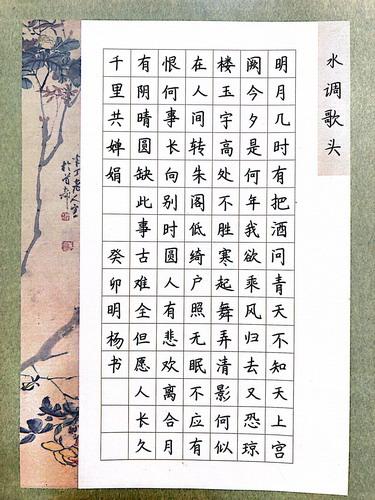 水调歌头
明月几时有把酒问青天不知天上宫
阙今夕是何年我欲乘风归去又恐琼
楼玉宇高处不胜寒起舞弄清影何似
在人间转朱阁低绮户照无眠不应有
恨何事长向别时圆人有悲欢离合月
有阴晴圆缺此事古难全但愿人长久
千里共婵娟 癸卯明杨书